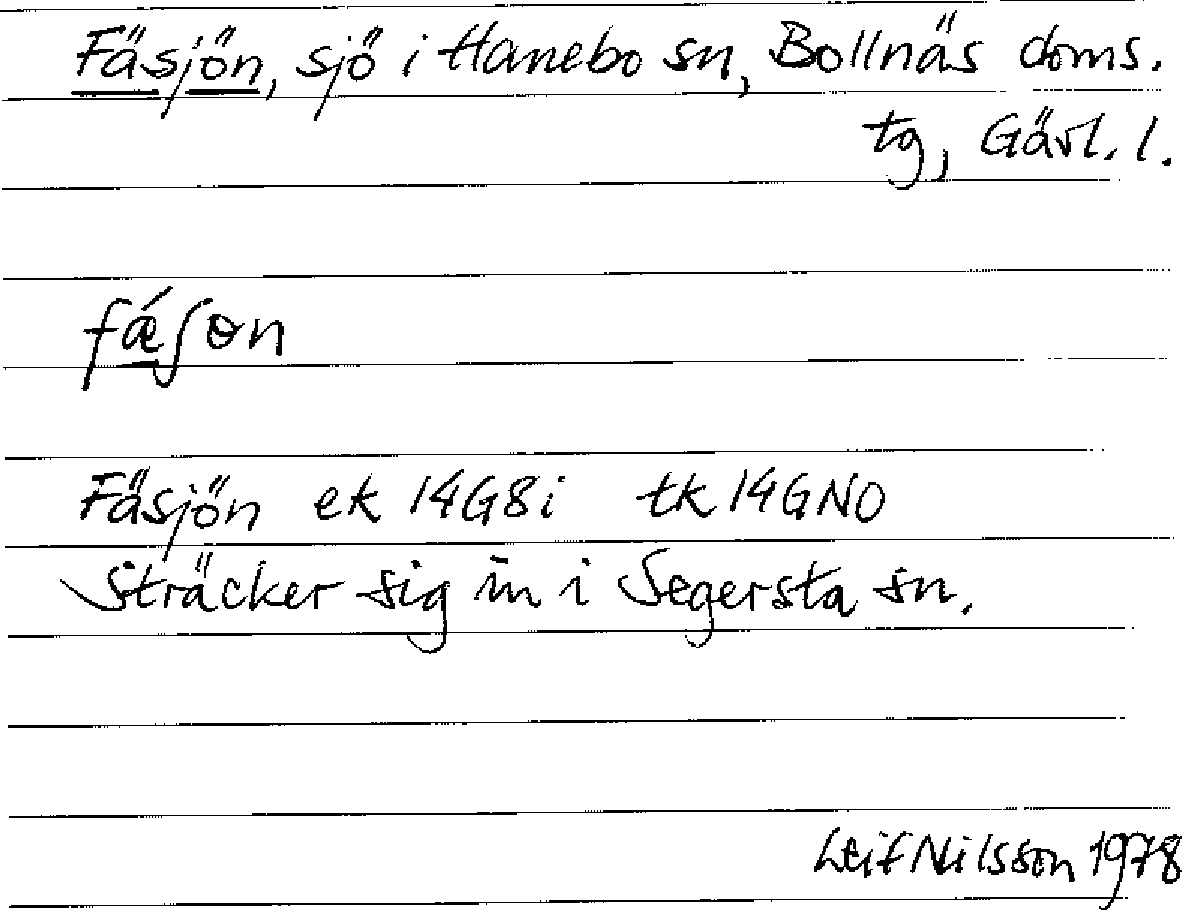 Fäsjön, sjö i Hanebo sn, Bollnäs doms.
tg, Gävl. l.
fǽʃɵn
Fäsjön ek 14G8i tk 14GNO
Sträcker sig in i Segersta sn.
Leif Nilsson 1978